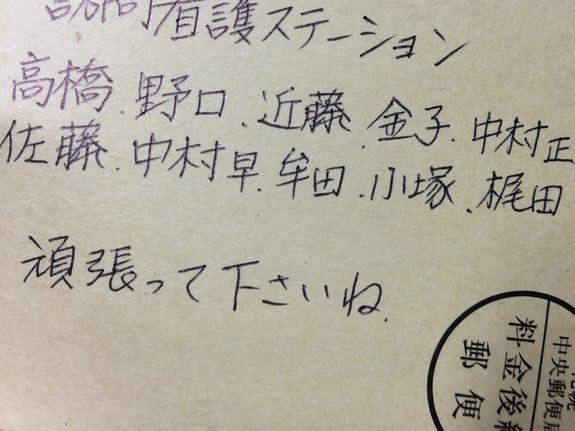 訪問看護ステーション
高橋、野口、近藤、金子、中村正
佐藤、中村早、牟田、小塚、梶田
頑張って下さいね。
札幌
中央郵便局
料金後納
郵便